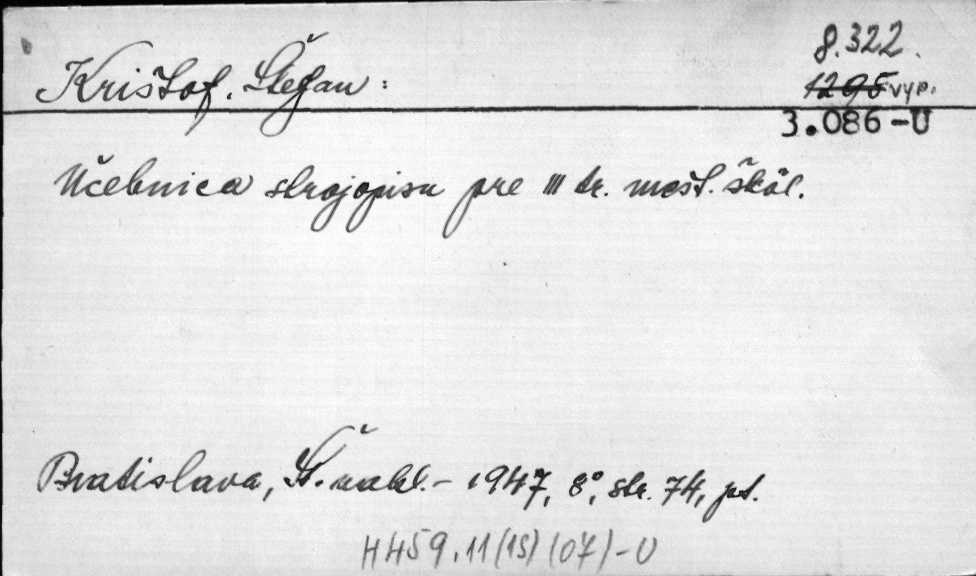 8.322.
Krištof, Štefan:
1295 vyp.
3.086-U
Učebnica strojopisu pre III tr. mešt. škôl.
Bratislava, Št. nakl. - 1947, 8°, str. 74,
H459.11(15)(07)-U